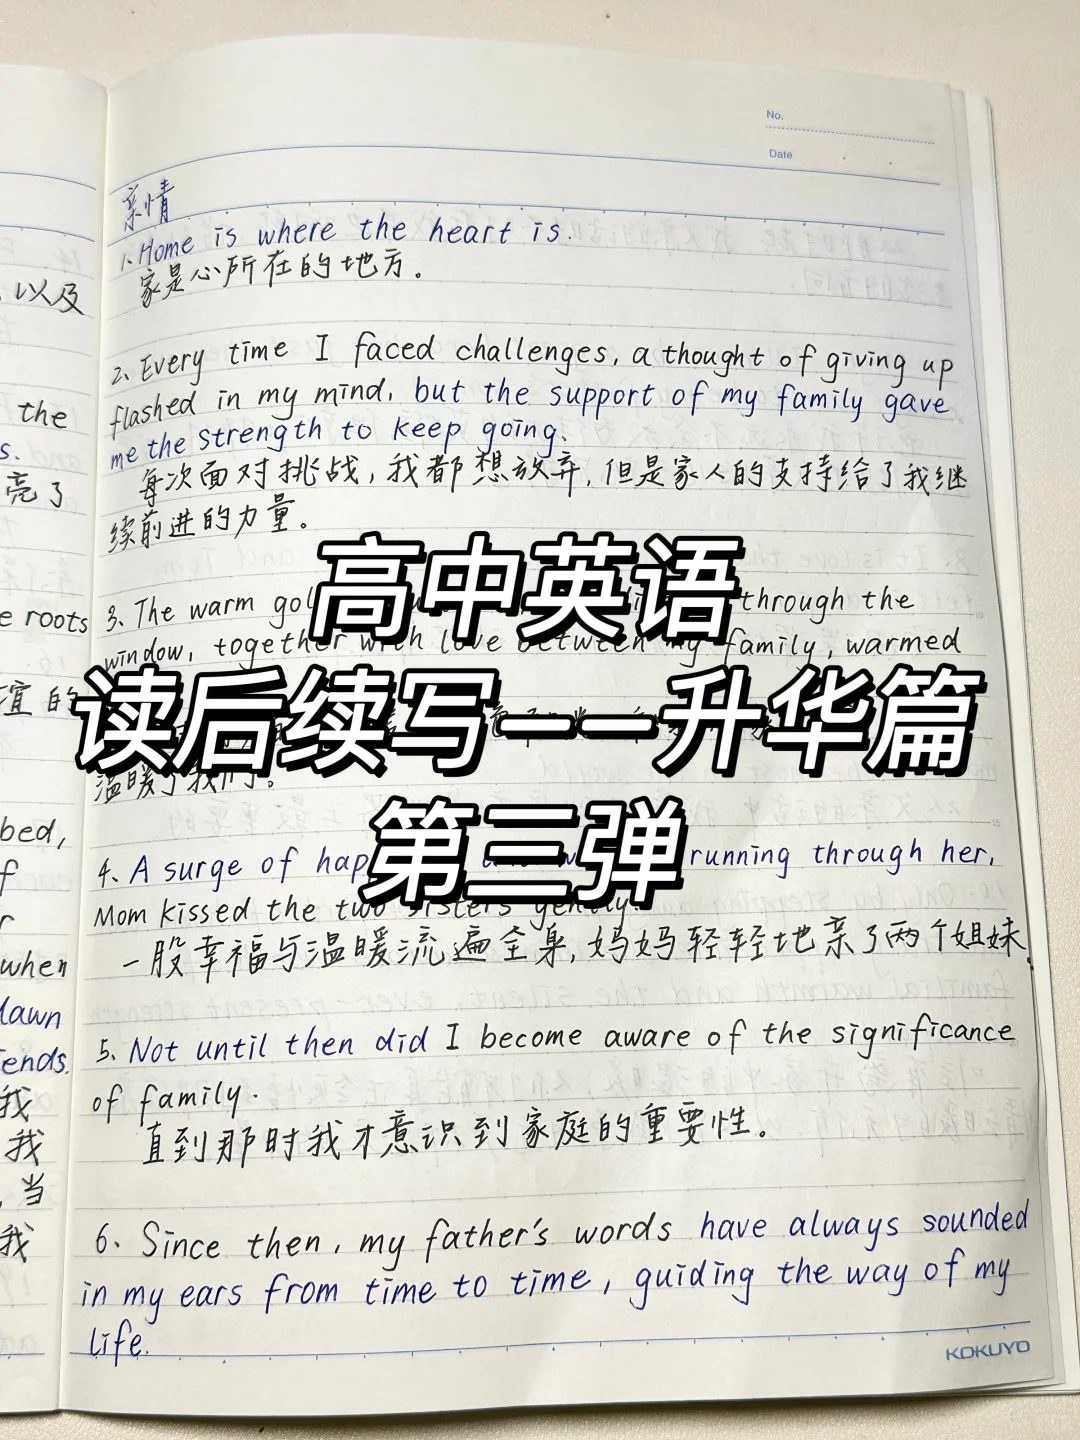 No.
Date
亲情
1. Home is where the heart is.
家是心所在的地方。
2. Every time I faced challenges, a thought of giving up
flashed in my mind, but the support of my family gave
me the strength to keep going.
每次面对挑战,我都想放弃,但是家人的支持给了我继
续前进的力量。
高中英语
3. The warm through the
window, together with love between my family, warmed
读后续写——升华篇
温暖了我们。
第三弹
4. A surge of running through her,
Mom kissed the two sisters gently.
一股幸福与温暖流遍全身,妈妈轻轻地亲了两个姐妹.
5. Not until then did I become aware of the significance
of family.
直到那时我才意识到家庭的重要性。
6. Since then, my father's words have always sounded
in my ears from time to time, guiding the way of my
life.
KOKUYO
,以及
the
s.
亮了
e roots
谊的
bed,
f
r
when
dawn
iends.
我
我
,当
我